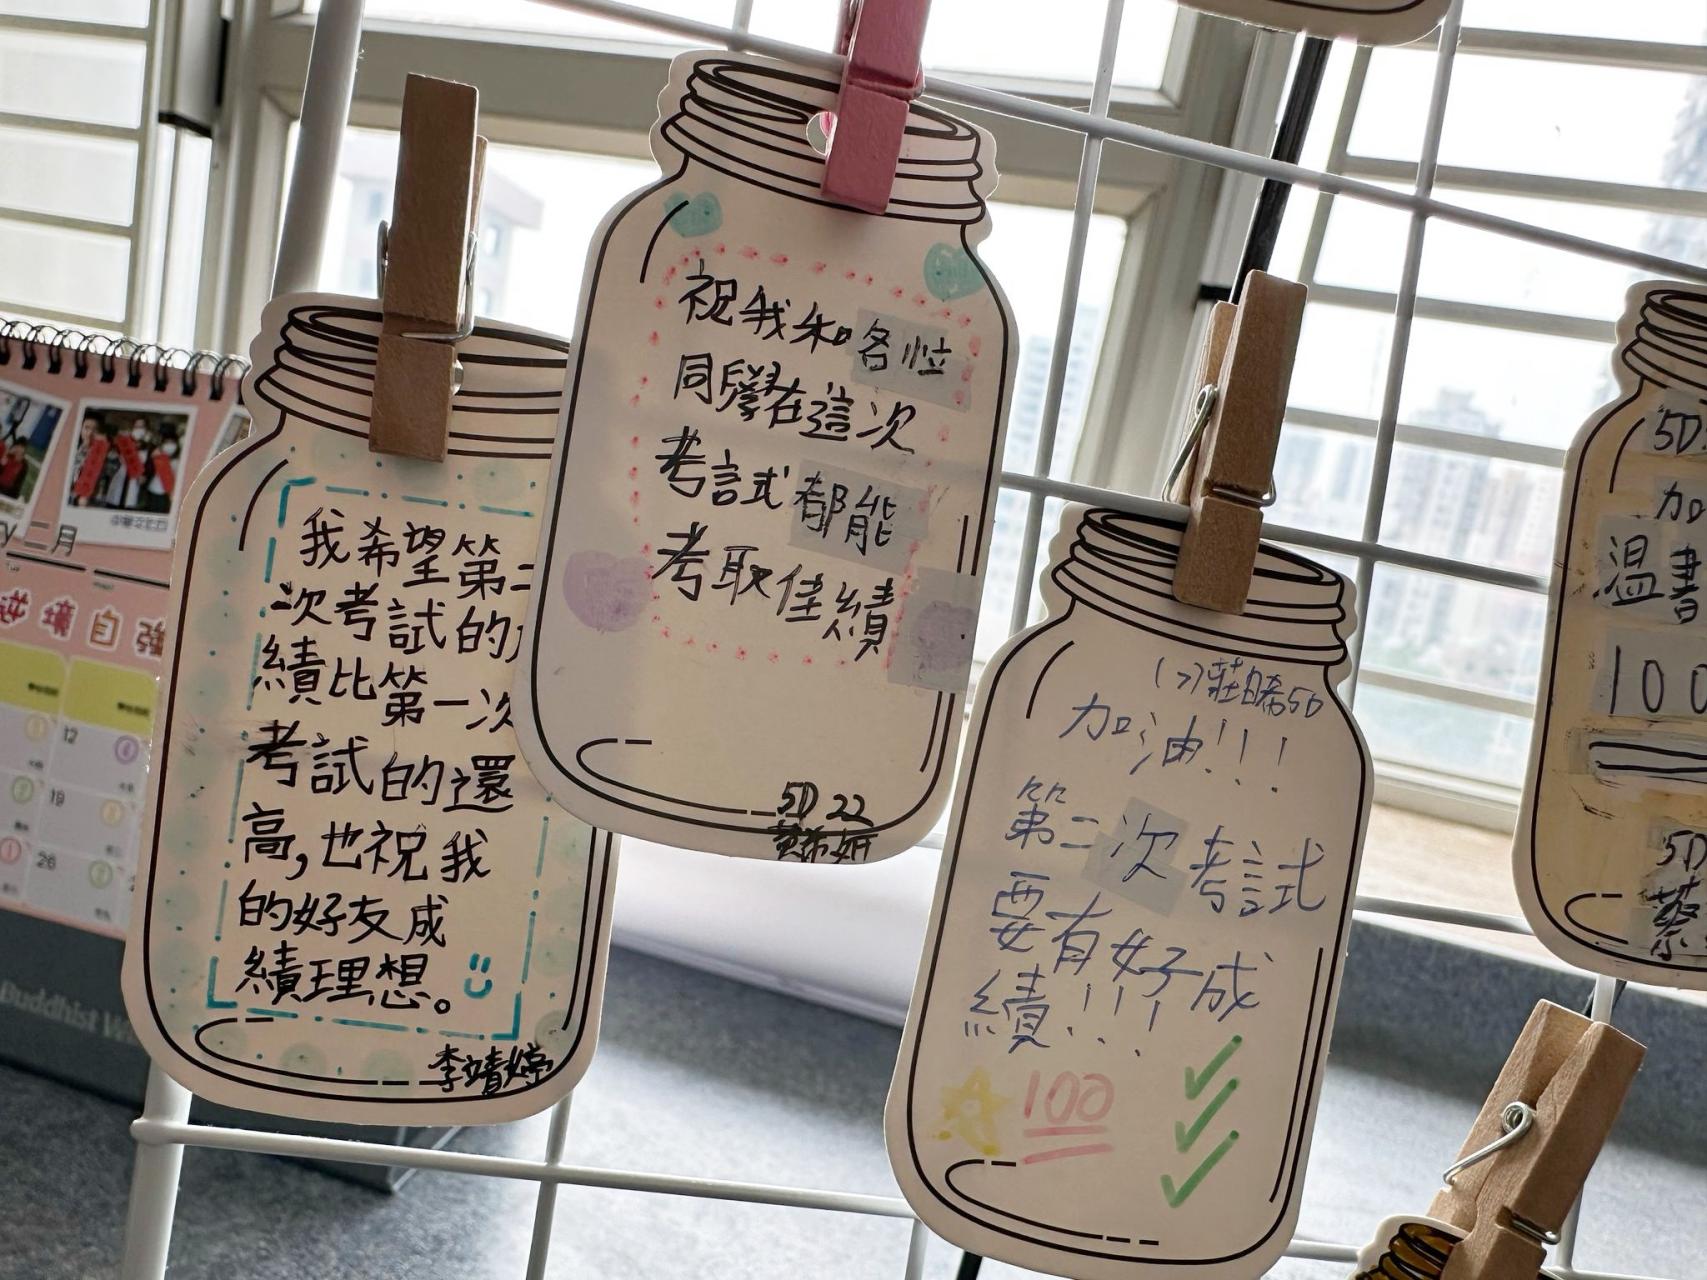 我希望第二
次考試的
績比第一次
考試的還
高,也祝我
的好友成
績理想。
李靖婷
祝我和各位
同學在這次
考試都能
考取佳績
5D 22
黃希妍
(7)莊日希5D
加油!!!
第二次考試
要有好成
績!!!
100
5D
加
溫書
100
5D
蔡
二月
逆境自強
12
19
26
Buddhist W